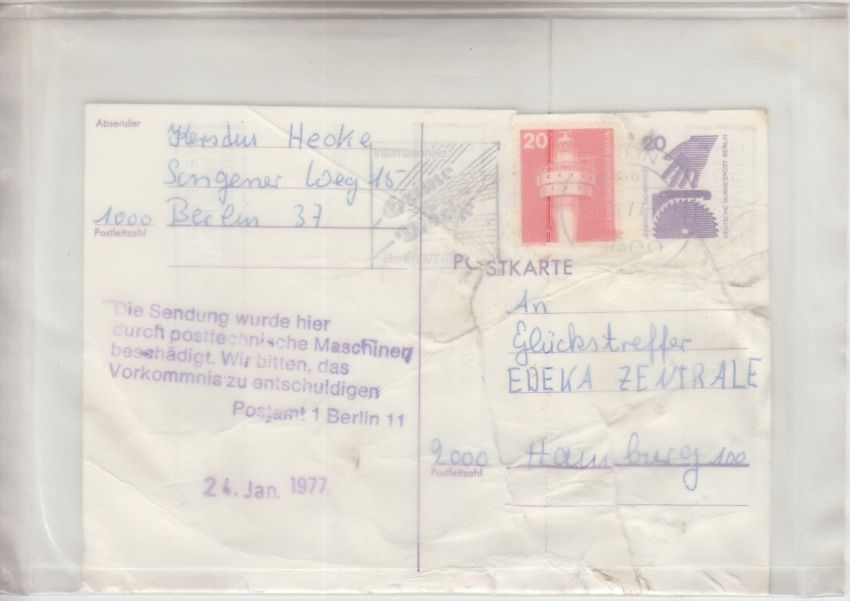 Absender
Hecke
Singener Weg 15
1000 Berlin 37
Postleitzahl
Internationale
Grüne
Woche
Berlin 1977
20
20
DEUTSCHE BUNDESPOST BERLIN
POSTKARTE
Die Sendung wurde hier
durch posttechnische Maschinen
beschädigt. Wir bitten, das
Vorkommnis zu entschuldigen
Postamt 1 Berlin 11
24. Jan. 1977
An
Glückstreffer
EDEKA ZENTRALE
2000 Hamburg 100
Postleitzahl